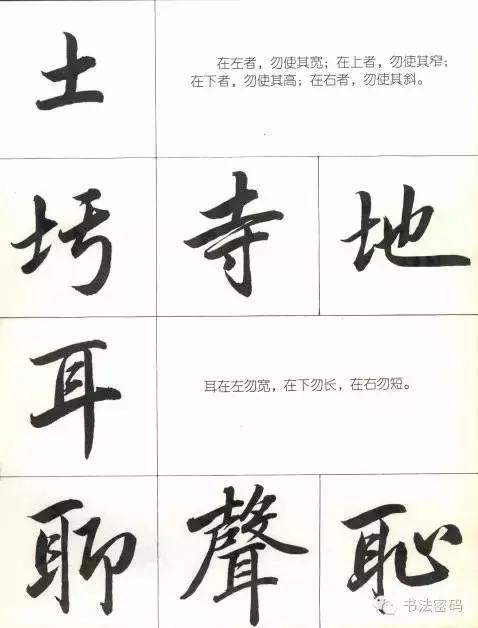 土
在左者，勿使其宽；在上者，勿使其窄；
在下者，勿使其高；在右者，勿使其斜。
圬 寺 地
耳
耳在左勿宽，在下勿长，在右勿短。
聊 聲 恥
书法密码